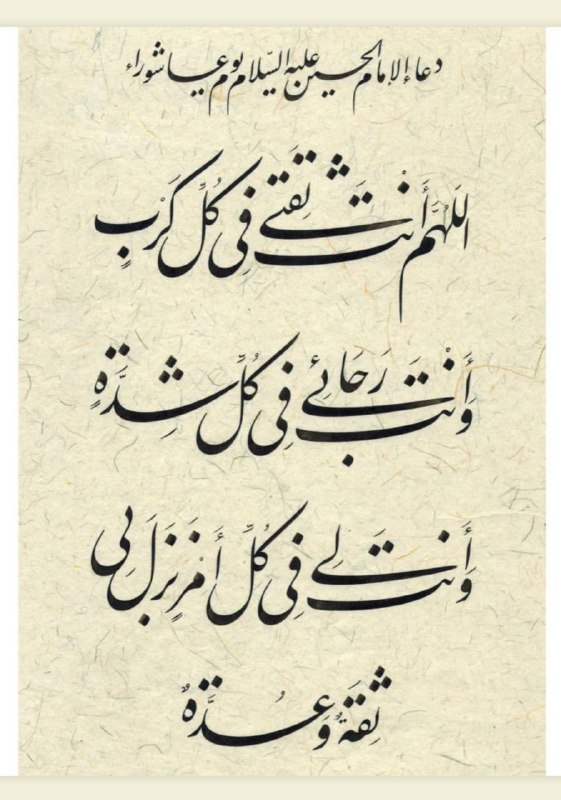 دعاء الإمام الحسين عليه السّلام يوم عاشوراء
اَللّهُمَّ أَنْتَ ثِقَتي فِي كُلِّ كَرْبٍ
وَأَنْتَ رَجَائِي فِي كُلِّ شِدَّةٍ
وَأَنْتَ لِي فِي كُلِّ أَمْرٍ نَزَلَ بِي
ثِقَةٌ وَعُدَّةٌ